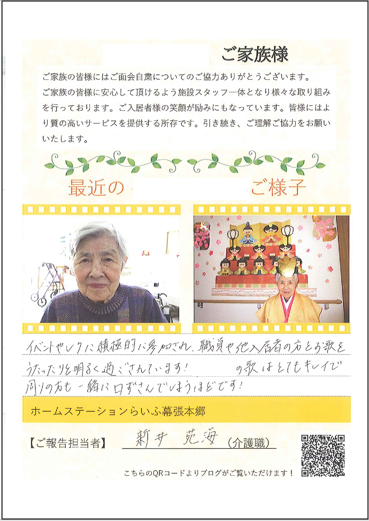 ご家族様
ご家族の皆様にはご面会自粛についてのご協力ありがとうございます。
ご家族の皆様に安心して頂けるよう施設スタッフ一体となり様々な取り組み
を行っております。ご入居者様の笑顔が励みにもなっています。皆様にはよ
り質の高いサービスを提供する所存です。引き続き、ご理解ご協力をお願い
いたします。
最近の ご様子
イベントやレクに積極的に参加され、職員や他入居者の方とお歌を
うたったりと明るく過ごされています! の歌はとてもキレイで
周りの方も一緒に口ずさんでしまうほどです!
ホームステーションらいふ幕張本郷
【ご報告担当者】 新井 苑海 (介護職)
こちらのQRコードよりブログがご覧いただけます!